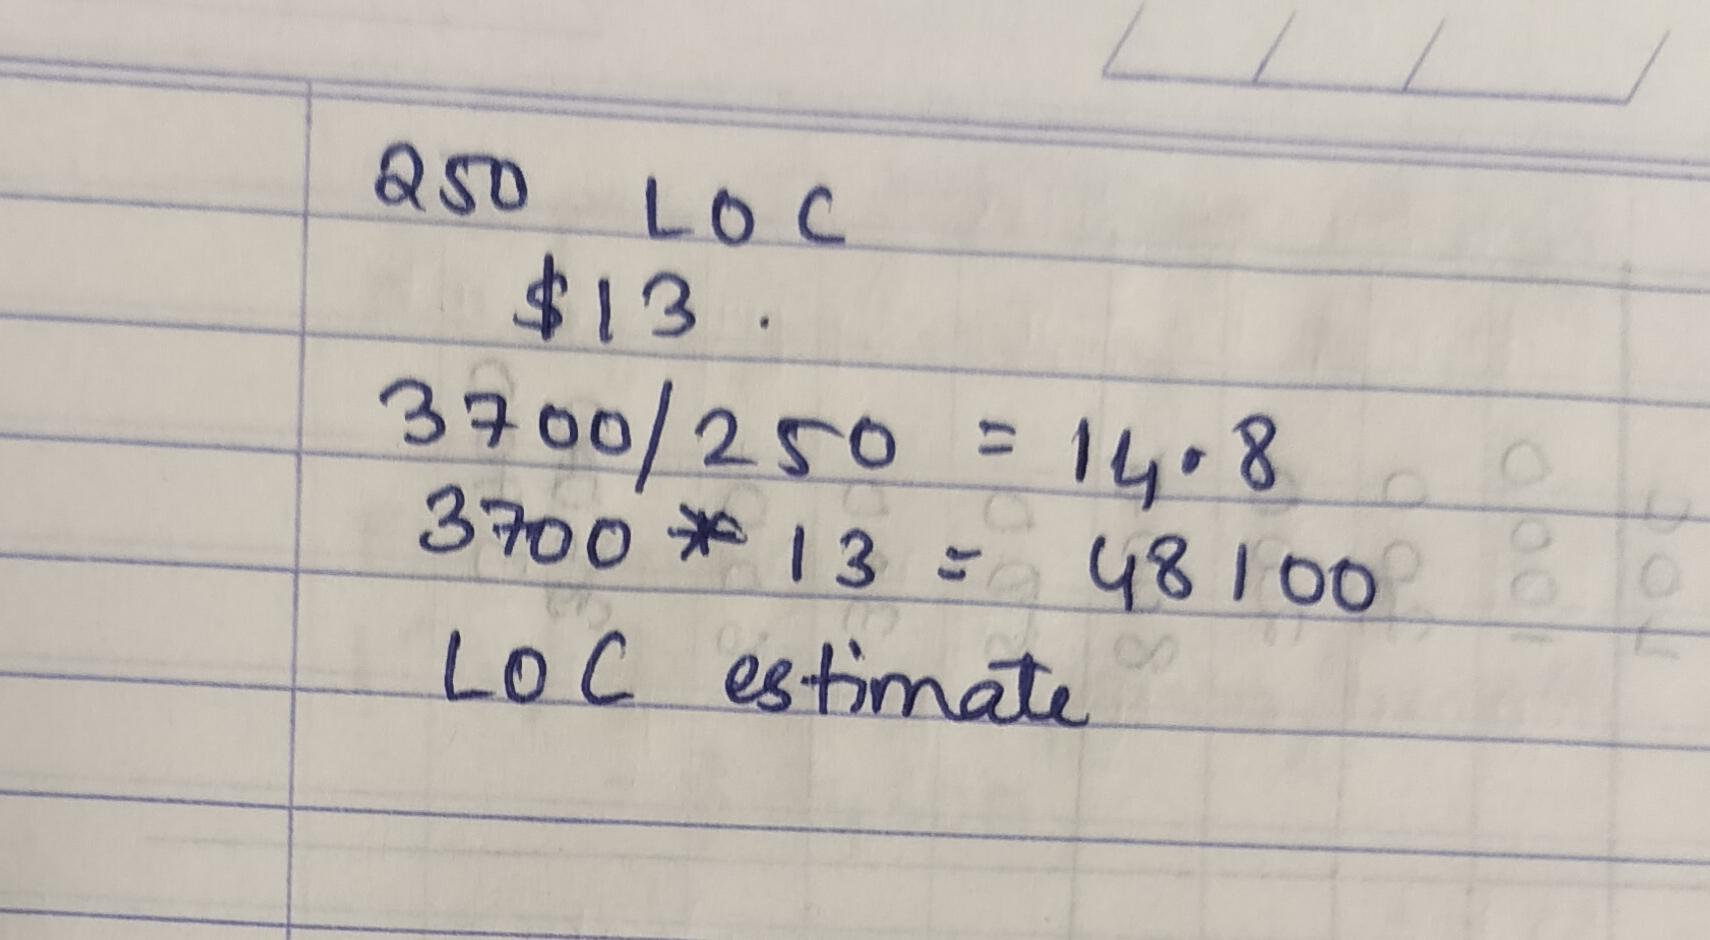 250 LOC
$13.
3700/250 = 14.8
3700 * 13 = 48100
LOC estimate